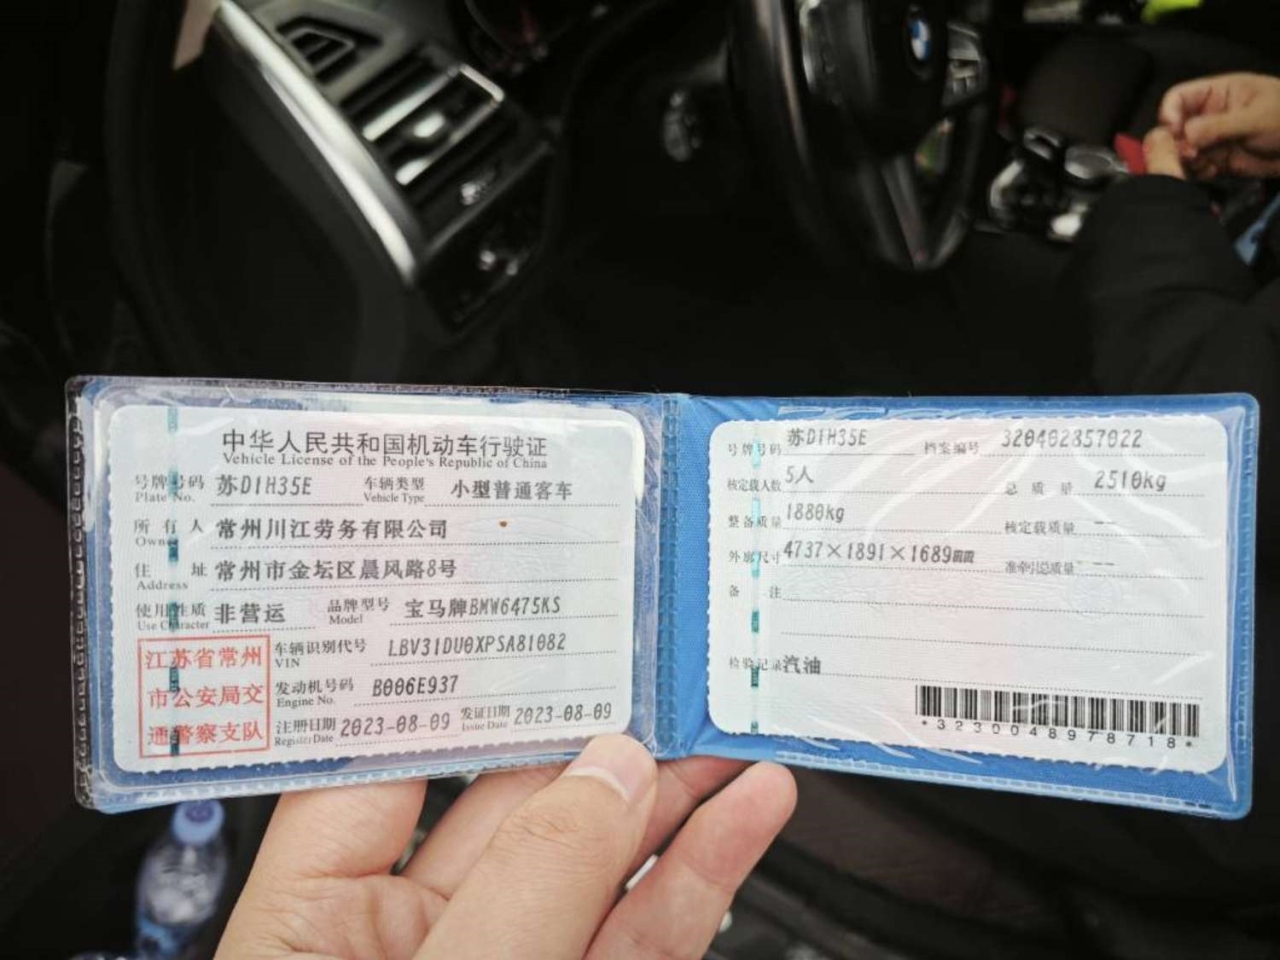 中华人民共和国机动车行驶证
Vehicle License of the People's Republic of China
号牌号码 苏D1H35E 车辆类型 小型普通客车
Plate No. Vehicle Type
所有人 常州川江劳务有限公司
Owner
住址 常州市金坛区晨风路8号
Address
使用性质 非营运 品牌型号 宝马牌BMW6475KS
Use Character Model
江苏省常州
市公安局交
通警察支队
车辆识别代号 LBV31DU0XPSA81082
VIN
发动机号码 B006E937
Engine No.
注册日期 2023-08-09 发证日期 2023-08-09
Register Date Issue Date
号牌号码 苏D1H35E 档案编号 320402857022
核定载人数 5人 总质量 2510kg
整备质量 1880kg 核定载质量 --
外廓尺寸 4737×1891×1689mm 准牵引总质量 --
备注
检验记录 汽油
*3230048978718*